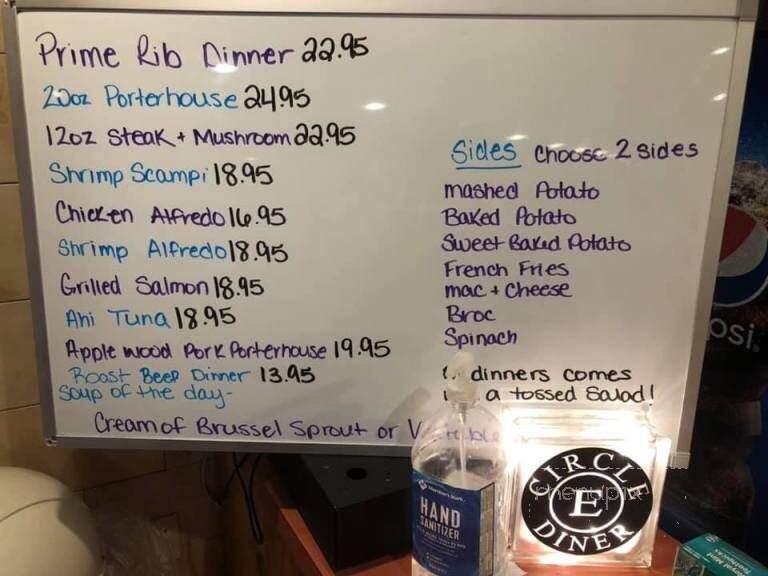 Prime Rib Dinner 22.95
20oz Porterhouse 24.95
12oz Steak + Mushroom 22.95
Shrimp Scampi 18.95
Chicken Alfredo 16.95
Shrimp Alfredo 18.95
Grilled Salmon 18.95
Ahi Tuna 18.95
Apple wood Pork Porterhouse 19.95
Roast Beef Dinner 13.95
Soup of the day-
Cream of Brussel Sprout or
Sides Choose 2 sides
mashed Potato
Baked Potato
Sweet Baked Potato
French Fries
mac + Cheese
Broc
Spinach
dinners comes
a tossed Salad!
HAND
SANITIZER
CIRCLE
E
DINER
menupix
psi.